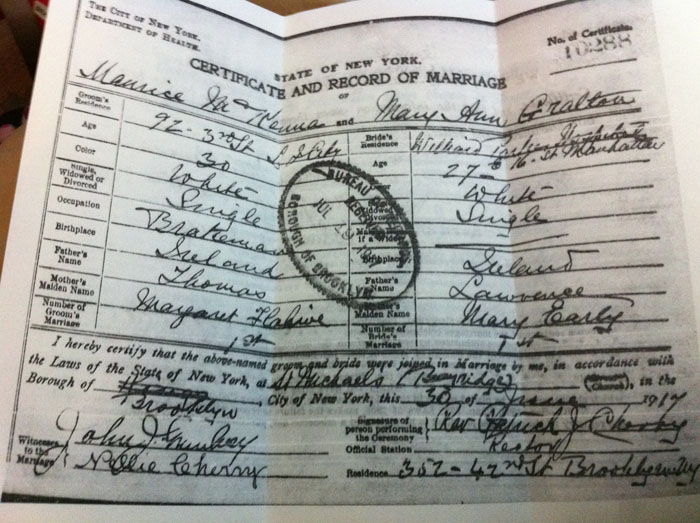 THE CITY OF NEW YORK.
DEPARTMENT OF HEALTH.
STATE OF NEW YORK.
No. of Certificate.
10288
CERTIFICATE AND RECORD OF MARRIAGE
OF
Maurice McKenna and Mary Ann Gralton
Groom's Residence 92-3rd St Bride's Residence Willard Parker Hospital
St Manhattan
Age 30 Age 27
Color White White
Single, Widowed or Divorced Single Widowed Divorced Single
Occupation Brakeman Maiden if a Widow
Birthplace Ireland Birthplace Ireland
Father's Name Thomas Father's Name Lawrence
Mother's Maiden Name Margaret Flahive Mother's Maiden Name Mary Early
Number of Groom's Marriage 1st Number of Bride's Marriage 1st
BUREAU
JUL
BOROUGH OF BROOKLYN
I hereby certify that the above-named groom and bride were joined in Marriage by me, in accordance with
the Laws of the State of New York, at St Michaels (Church), in the
Borough of Brooklyn, City of New York, this 30 of June 1917
Witnesses to the Marriage John J
Nellie Cherry
Signature of person performing the Ceremony Rev Patrick J
Official Station Rector
Residence 352-42nd St Brooklyn NY